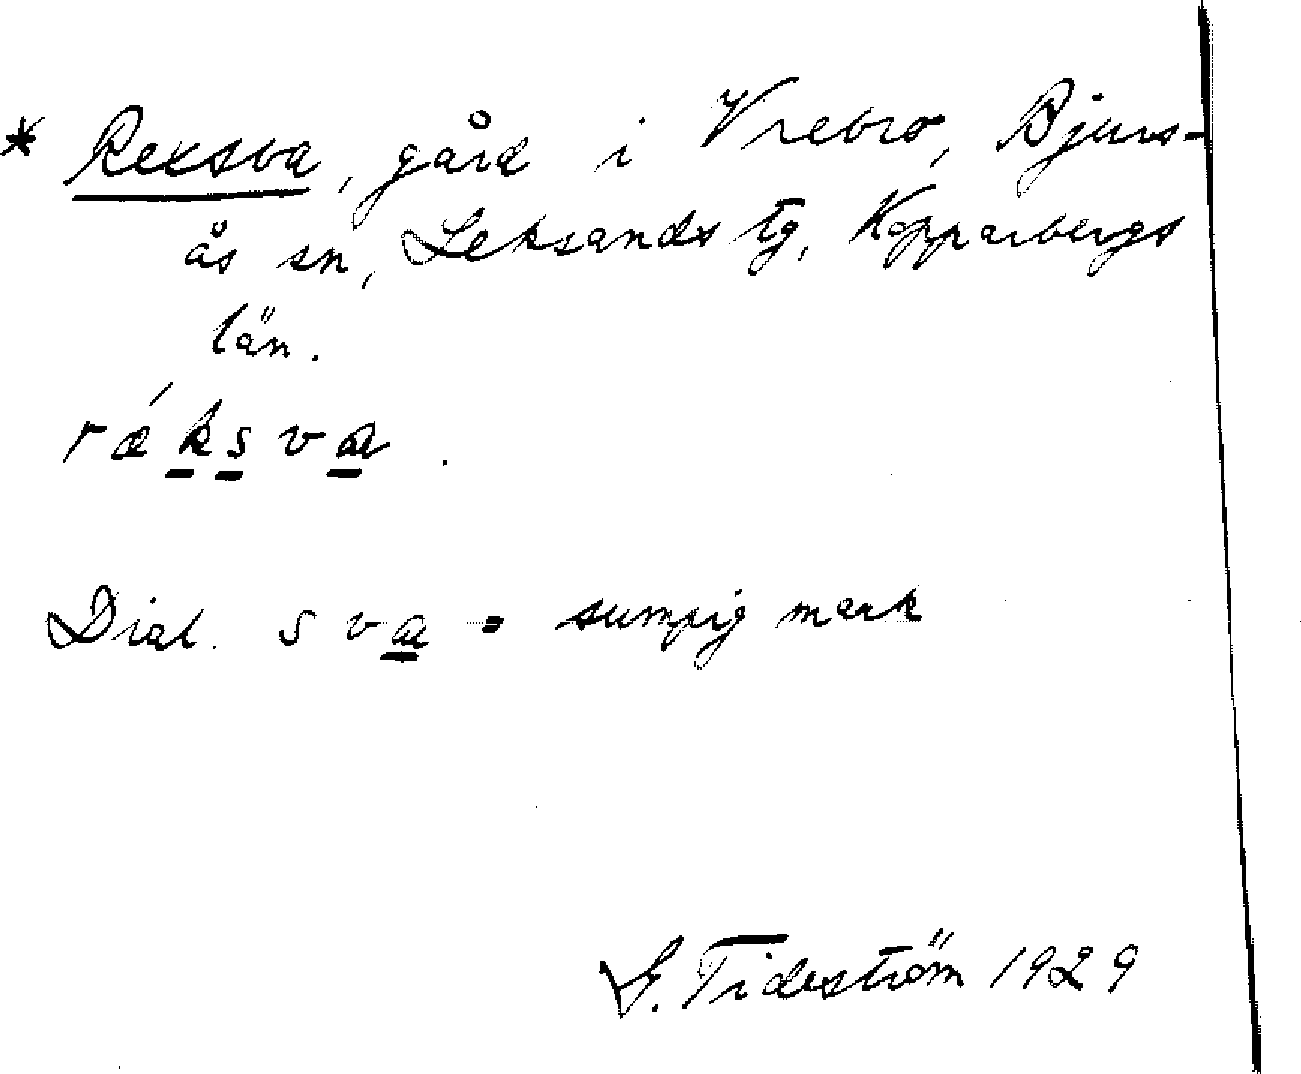 * Rexsva, gård i Vrebro, Bjurs-
ås sn, Leksands tg, Kopparbergs
län.
rǽksva.
Dial. sva = sumpig mark
G. Tideström 1929